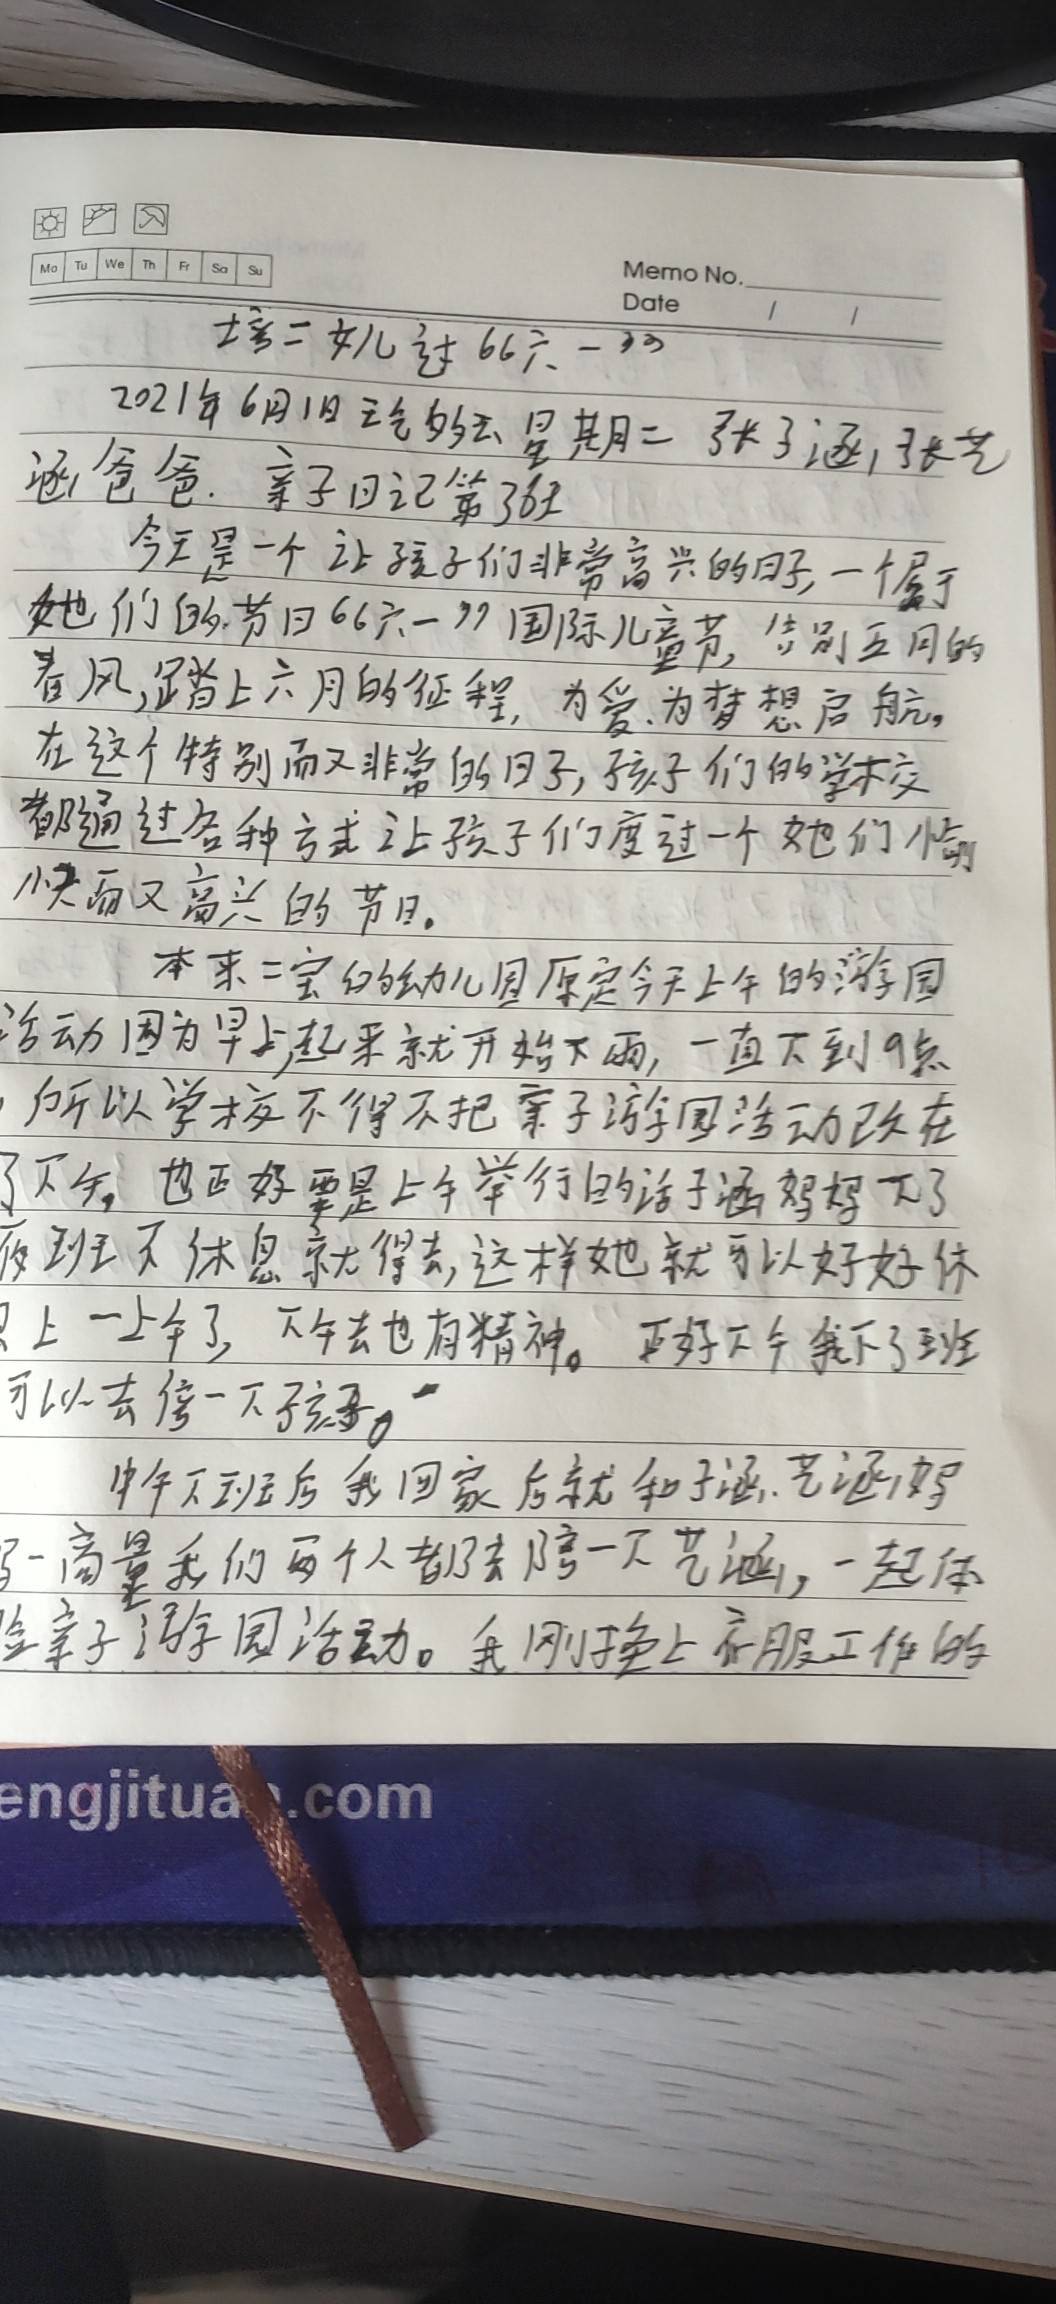 Mo Tu We Th Fr Sa Su
Memo No.
Date / /
培二女儿过“六一”
2021年6月1日 天气多云 星期二 张子涵,张艺
涵爸爸. 亲子日记第36天
今天是一个让孩子们非常高兴的日子,一个属于
她们的节日“六一”国际儿童节,告别五月的
春风,踏上六月的征程,为爱.为梦想启航。
在这个特别而又非常的日子,孩子们的学校
都通过各种方式让孩子们度过一个她们愉
快而又高兴的节日。
本来二宝的幼儿园原定今天上午的游园
活动因为早上起来就开始下雨,一直下到9点
,所以学校不得不把亲子游园活动改在
了下午。也正好要是上午举行的话子涵妈妈下了
夜班不休息就得去,这样她就可以好好休
息上一上午了,下午去也有精神。正好下午我下了班
可以去陪一下孩子。
中午下班后我回家后就和子涵.艺涵妈
妈一商量我们两个人都去陪一下艺涵,一起体
验亲子游园活动。我刚换上衣服工作的
engjituan.com